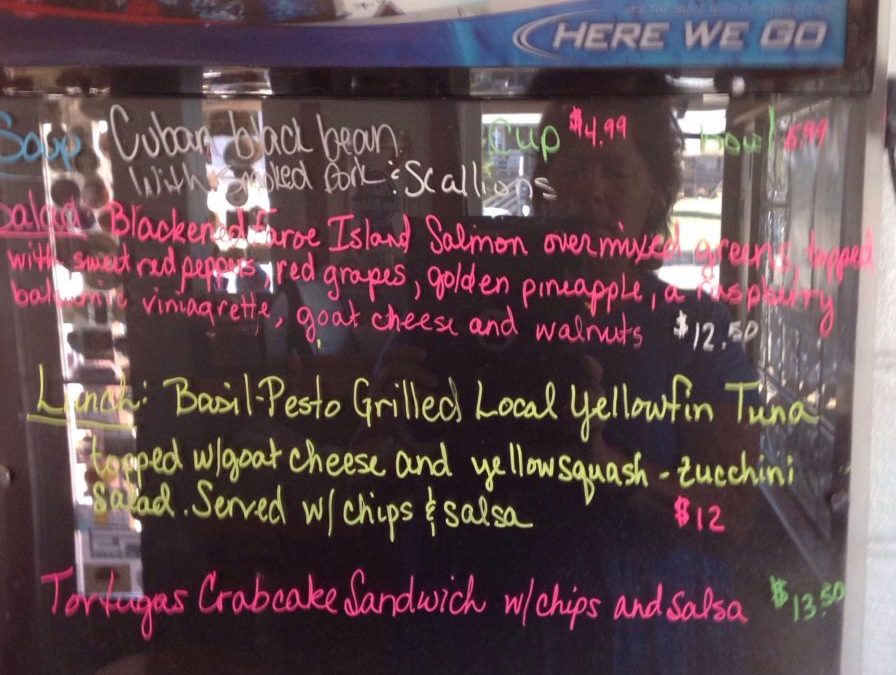 HERE WE GO
Soup Cuban black bean Cup $4.99 bowl 5.99
With smoked Pork & Scallions
Salad Blackened Faroe Island Salmon over mixed greens, topped
with sweet red peppers, red grapes, golden pineapple, a raspberry
balsamic viniagrette, goat cheese and walnuts $12.50
Lunch: Basil-Pesto Grilled Local Yellowfin Tuna
topped w/goat cheese and yellow squash - zucchini
salad. Served w/ chips & salsa $12
Tortugas Crabcake Sandwich w/chips and salsa $13.50